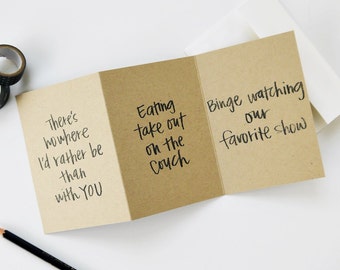 There's
nowhere
I'd rather be
than
with YOU
Eating
take out
on the
couch
Binge watching
our
favorite show